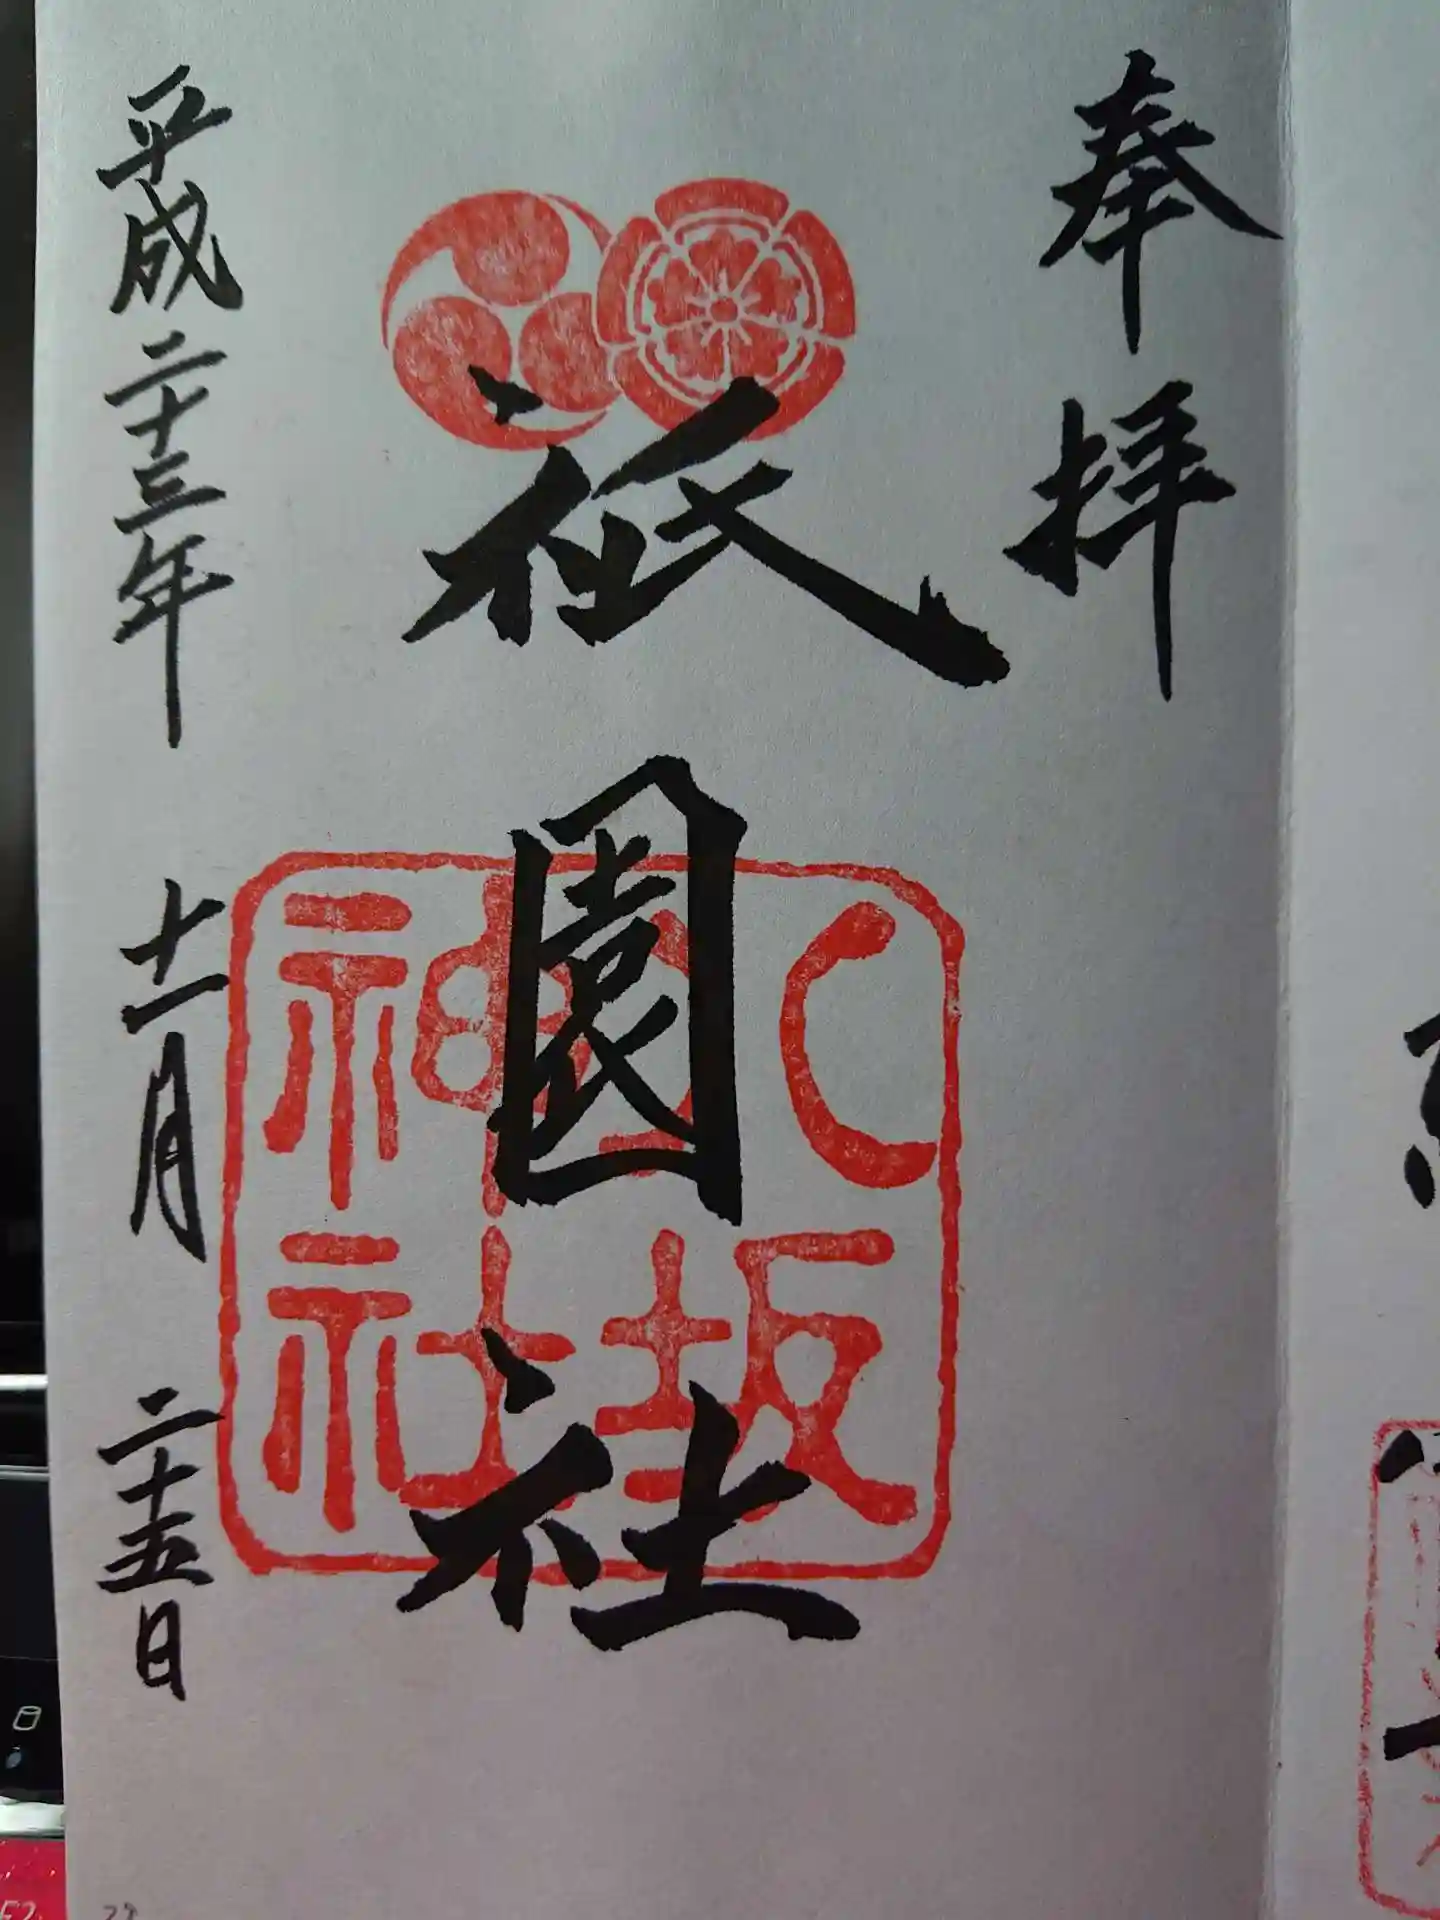 奉拝
祇園社
八坂
神社
平成二十三年 十一月 二十五日
F2